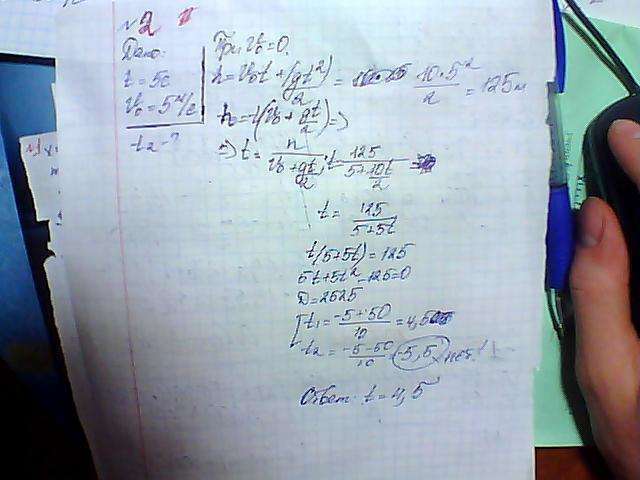 №2
Дано:
t = 5с
v₀ = 5 м/с
t₂ - ?
При v₀ = 0.
h = v₀t + (gt²)/2 = (10·5²)/2 = 125м
h = t(v₀ + gt/2) =>
=> t = h/(v₀ + gt/2); t = 125/(5 + 10t/2)
t = 125/(5+5t)
t(5+5t) = 125
5t + 5t² - 125 = 0
D = 2525
t₁ = (-5+50)/10 = 4,5
t₂ = (-5-50)/10 = -5,5 нет!
Ответ: t = 4,5